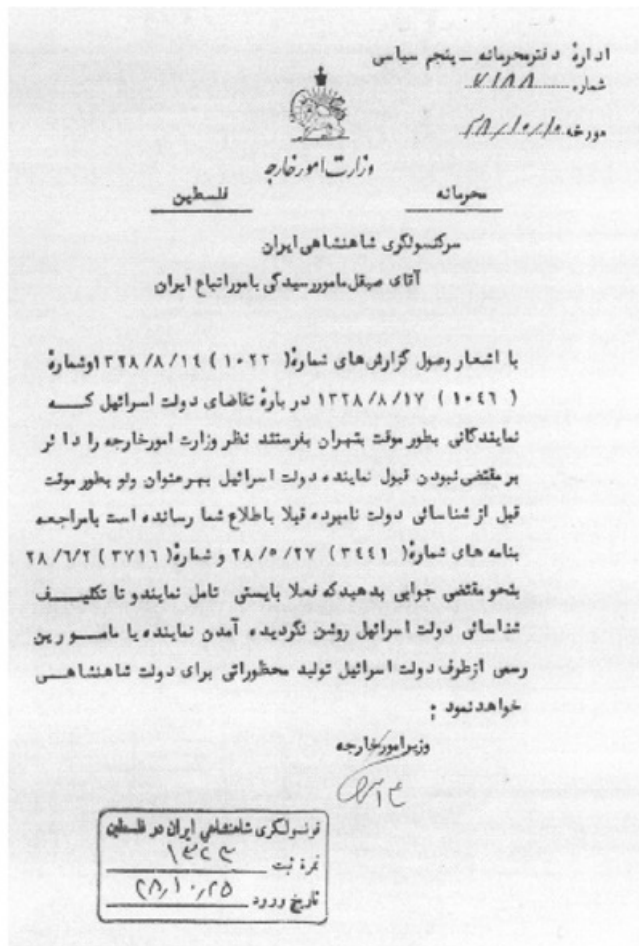 ادارهٔ دفترمحرمانه ــ پنجم سیاسی
شماره ۷۱۸۸
مورخه ۲۸/۱۰/۱۰
وزارت امورخارجه
محرمانه
فلسطین
سرکنسولگری شاهنشاهی ایران
آقای صیقل مامور رسیدگی بامور اتباع ایران
با اشعار وصول گزارش‌های شمارهٔ( ۱۰۲۲ ) ۱۳۲۸/۸/۱۴ وشمارهٔ
( ۱۰٤٦ ) ۱۳۲۸/۸/۱۷ در بارهٔ تقاضای دولت اسرائیل کــه
نمایندگانی بطور موقت بتهران بفرستند نظر وزارت امورخارجه را دائر
بر مقتضی نبودن قبول نماینده دولت اسرائیل بهرعنوان ولو بطور موقت
قبل از شناسائی دولت نامبرده قبلا باطلاع شما رسانده است بامراجعه
بنامه های شمارهٔ( ۳٤٤۱ ) ۲۸/۵/۲۷ و شمارهٔ( ۳۷۱٦ ) ۲۸/٦/۲
بنحو مقتضی جوابی بدهیدکه فعلا بایستی تامل نمایندو تا تکلیــف
شناسائی دولت اسرائیل روشن نگردیده آمدن نماینده یا مامــورین
رسمی ازطرف دولت اسرائیل تولید محظوراتی برای دولت شاهنشاهــی
خواهدنمود :
وزیرامورخارجه
قونسولگری شاهنشاهی ایران در فلسطین
نمرهٔ ثبت
تاریخ ورود ۲۸/۱۰/۲۵